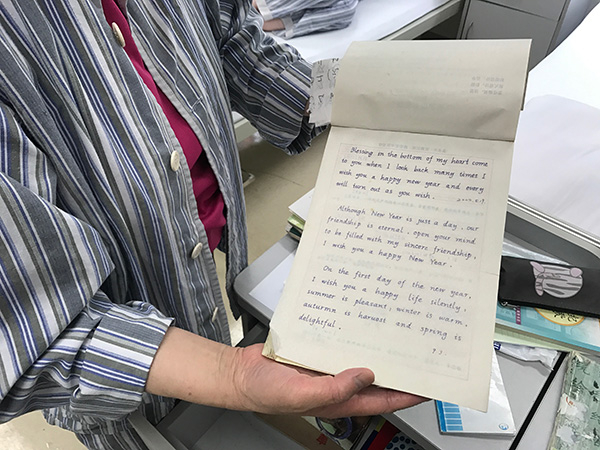 Blessing in the bottom of my heart come
to you when I look back many times I
wish you a happy new year and every
will turn out as you wish.
Although New Year is just a day, our
friendship is eternal, open your mind
to be filled with my sincere friendship,
I wish you a happy New Year.
On the first day of the new year,
I wish you a happy life silently,
summer is pleasant, winter is warm,
autumn is harvest and spring is
delightful.